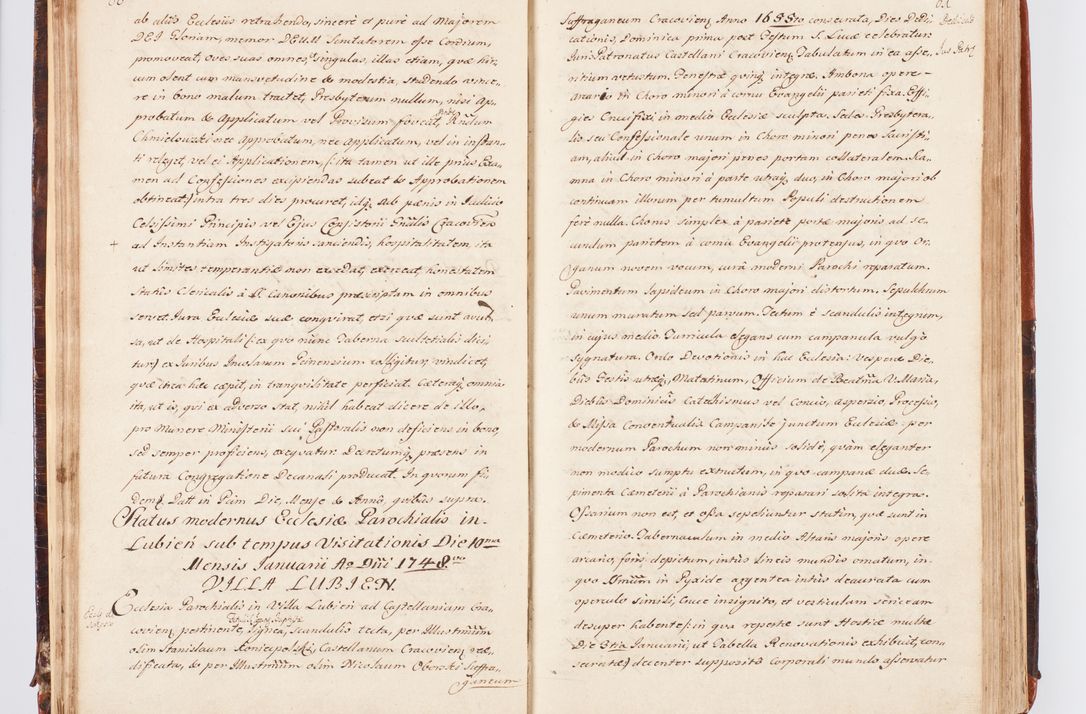 ab aliis Ecclesiis retrahendo, sincere et pure ad Majorem
DEI Gloriam, memor DEUM Scrutatorem esse Cordium,
promoveat, Oves suas omnes, singulas, illas etiam, quæ hir-
cum olent cum mansvetudine & modestia, studendo vince-
re in bono malum tractet, Presbyterum nullum, nisi Ap-
probatum & Applicatum vel Provisum foveat, Rndum
Chmielowski nec Approbatum, nec Applicatum, vel in instan-
ti releget, vel ei Applicationem /: ita tamen ut ille prius Exa-
men ad Confessiones excipiendas subeat & Approbationem
obtineat:/ intra tres dies procuret, idq; sub pænis in Judicio
Celsissimi Principis vel Ejus Consistorii Gnalis Cracoviensis
ad Instantiam Instigatoris sanciendis, hospitalitatem ita
ut limites temperantiæ non excedat, exerceat, honestatem
status Clericalis à SS. Canonibus præscriptam in omnibus
servet. Jura Ecclesiæ suæ conqvirat, etsi quæ sunt avul-
sa, ut de Hospitali /: ex quo nunc Taberna scultetialis dici
tur:/ ex Juribus Incolarum colligitur, vindicet,
quæ circa hæc cæpit, in tranquilitate perficiat. Cæteraq; omnia
ita, ut is, qui ex adverso stat, nihil habeat dicere de illo,
pro Munere Ministerii sui Pastoralis non deficiens in bono,
sed semper proficiens, exeqvatur. Decretumq; præsens in
futura Congregatione Decanali producat. In quorum fi-
dem. Datt in Die, Mense & Anno, quibus supra.
Status modernus Ecclesiæ Parochialis in
Lubień sub tempus Visitationis Die 10ma
Mensis Januarii Ao Dni 1748vo
VILLA LUBIEN.
Ecclesia Parochialis in Villa Lubień ad Castellaniam Cra-
covien; pertinente, lignea, scandulis tecta, per Illustrmum
olim Stanislaum Koniecpolski, Castellanum Cracovien; ræ-
dificata, & per Illustrmum olim Nicolaum Oborski Suffra-
ganeum
Suffraganeum Cracovien; Anno 1655to consecrata, Dies Dedi-
Dedicatio
cationis, Dominica prima post Festum S. Lucæ celebratur.
Jus Patronatus Castellani Cracovien; Tabulatum in ea asse-
Jus Patr;
ritium vetustum. Fenestræ quinq; integræ. Ambona opere
arcario in Choro minori à cornu Evangelii parieti fixa. Effi-
gies Crucifixi in medio Ecclesiæ sculpta. Sedes Presbytera-
lis seu Confessionale unum in Choro minori penes Sacristi-
am, aliud in Choro majori penes portam collateralem. Sca-
mna in Choro minori à parte utraq; duo, in Choro majori ob
continuam illorum per tumultum Populi destructionem
ferè nulla. Chorus simplex à pariete portæ majoris ad se-
cundum parietem à cornu Evangelii protensus, in quo Or-
ganum novem vocum, curâ moderni Parochi reparatum.
Pavimentum lapideum in Choro majori distortum. Sepulchrum
unum muratum sed parvum. Tectum è scandulis integrum,
in cujus medio Turricula elegans cum campanula vulgò
sygnatura. Ordo Devotionis in hac Ecclesia: Vesperæ Die-
bus Festis utræq; Matutinum, Officium de Beatma V. Maria,
Diebus Dominicis Catechismus vel Concio, Asperzio, Processio,
& Missa Conventualis Campanile junctum Ecclesiæ per
modernum Parochum non minus solidè, quàm eleganter
non modico sumptu extrutum, in quo campanæ duæ. Se-
pimenta Cæmeterii à Parochianis reparari solita integra.
Ossarium non est, et ossa sepeliuntur statim, quæ sunt in
Cæmeterio. Tabernaculum in medio Altaris majoris opere
arcario, foris depictum, intus linteis mundis ornatum, in-
quo in Pyxide argentea intus deaurata cum
operculo simili, Cruce insignito, et vestículum sericeam
desuper habente, in qua repertæ sunt Hostiæ multæ
Die Januarii, ut Tabella Renovationis exhibuit, con-
secratæ decenter supposito Corporali mundo asservatur